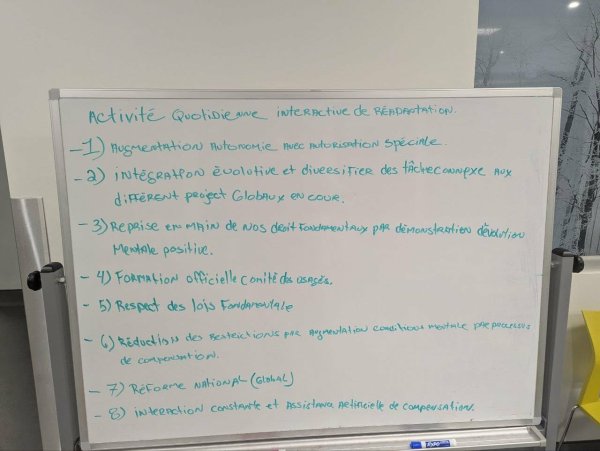 Activité Quotidienne interactive de RÉADAPTATION.
- 1) Augmentation Autonomie avec Autorisation spéciale.
- 2) intégration évolutive et diversifier des tâche connexe aux
différent project Globaux en cour.
- 3) Reprise en main de nos droit fondamentaux par démonstration d'évolution
mentale positive.
- 4) Formation officielle comité des usagés.
- 5) Respect des lois Fondamentale
- 6) Réductions des Restrictions par Augmentation conditions mentale par processus
de compensation.
- 7) Réforme National (Global)
- 8) interaction constante et Assistance Artificielle de compensation.
EXPO